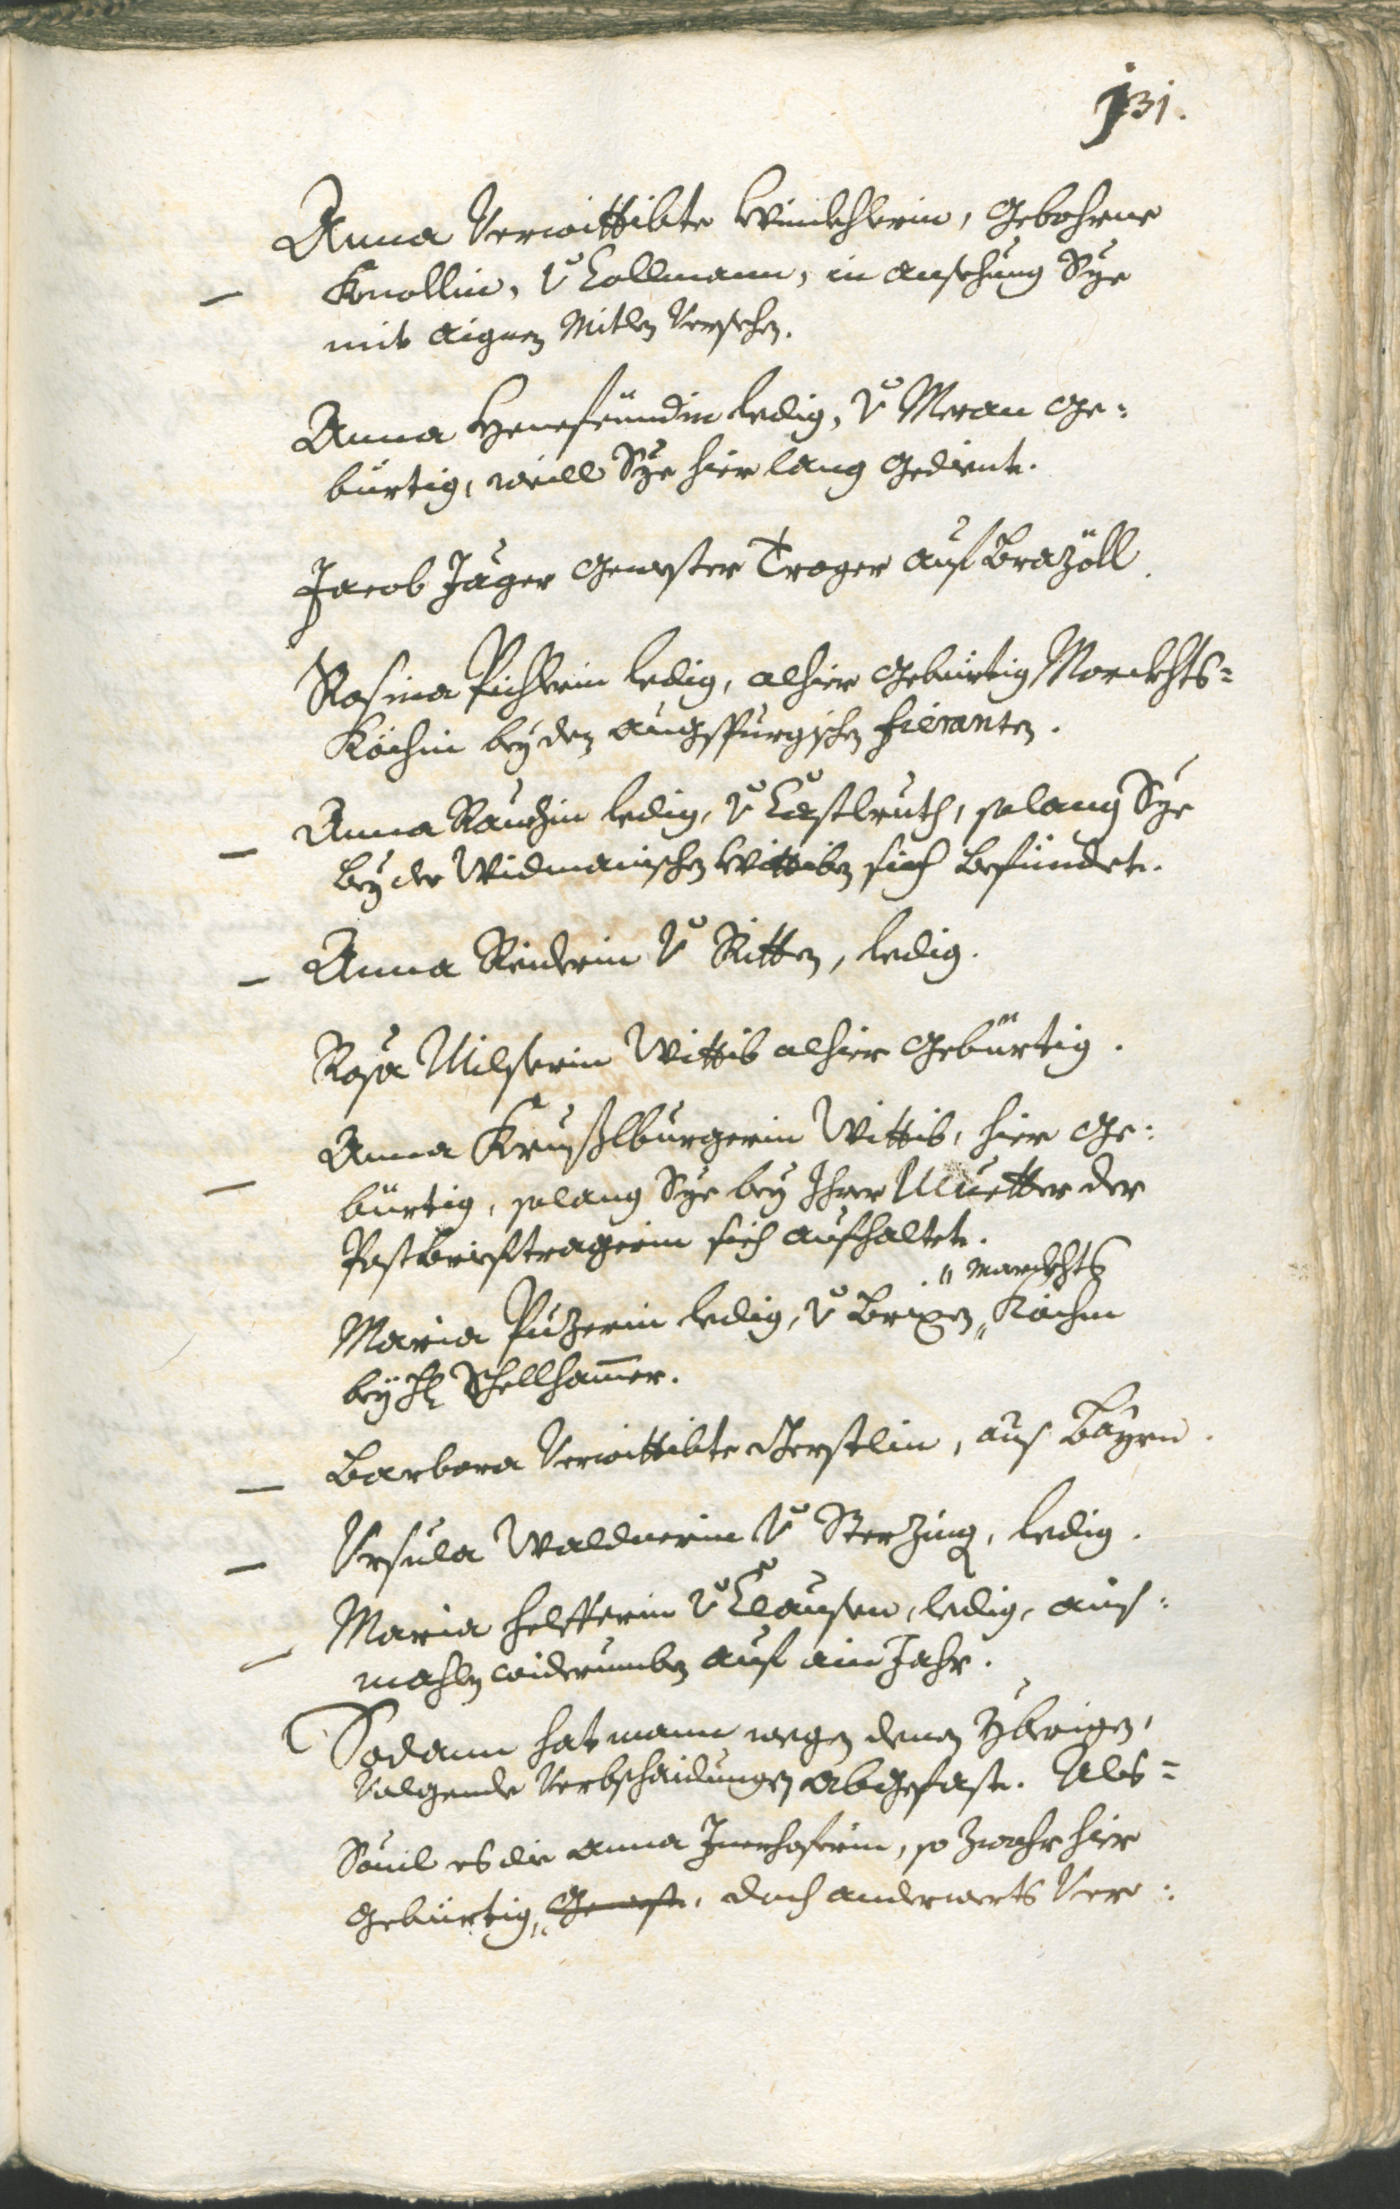 131.
Anna Verwittibte Windtschlerin, gebohrne
Knollin, v Collmann, in ansechung Sye
mit aignen Mitlen versechen.
Anna Hennefeündin ledig, v Meran ge:
bürtig, weill Sye hier lang gedient.
Jacob Jäger gewester Trager auf Brazöll.
Rosina Pichlerin ledig, alhier gebürtig Marckhts=
Köchin bey den Augspurgischen fieranten.
Anna Rauchin ledig, v Castlruth, solang Sye
bey der Widmanischen Wittiben sich befündet.
Anna Riederin v Ritten, ledig.
Rosa Milserin Wittib alhier gebürtig.
Anna Kreußlburgerin Wittib, hier ge:
bürtig, solang Sye bey Ihrer Muetter der
Postbrieftragerin sich aufhaltet.
" Marckhts
Maria Puzerin ledig, v Brixen, " Köchin
bey H: Schellhammer.
Barbara Verwittibte Gerstlin, aus Bayrn.
Ursula Waldnerin v Sterzing, ledig.
Maria Helfferin v Clausen, ledig, ain=
mahlen widerumben auf ain Jahr.
Sodann hat mann wegen denen ybrigen,
volgende Verbschaidungen abgefast. Als=
Souil es die Anna Innerhoferin, so zwahr hier
gebürtig, " gewest, doch anderwerts Ver: